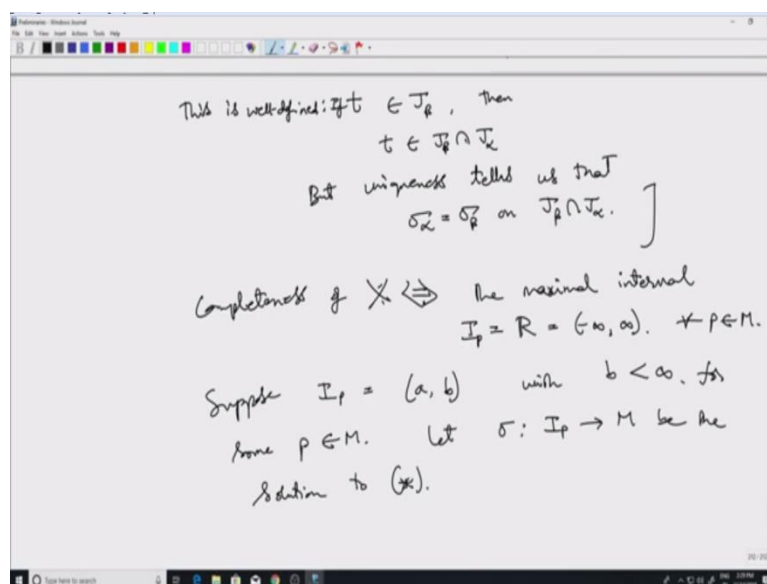 Preliminaries - Windows Journal
File Edit View Insert Actions Tools Help
This is well-defined: If t ∈ J_β, then
t ∈ J_β ∩ J_α
But uniqueness tells us that
σ_α = σ_β on J_β ∩ J_α. ]
Completeness of X ⟺ the maximal interval
I_p = R = (-∞, ∞). ∀ p ∈ M.
Suppose I_p = (a, b) with b < ∞. for
some p ∈ M. Let σ: I_p → M be the
solution to (*).
Type here to search